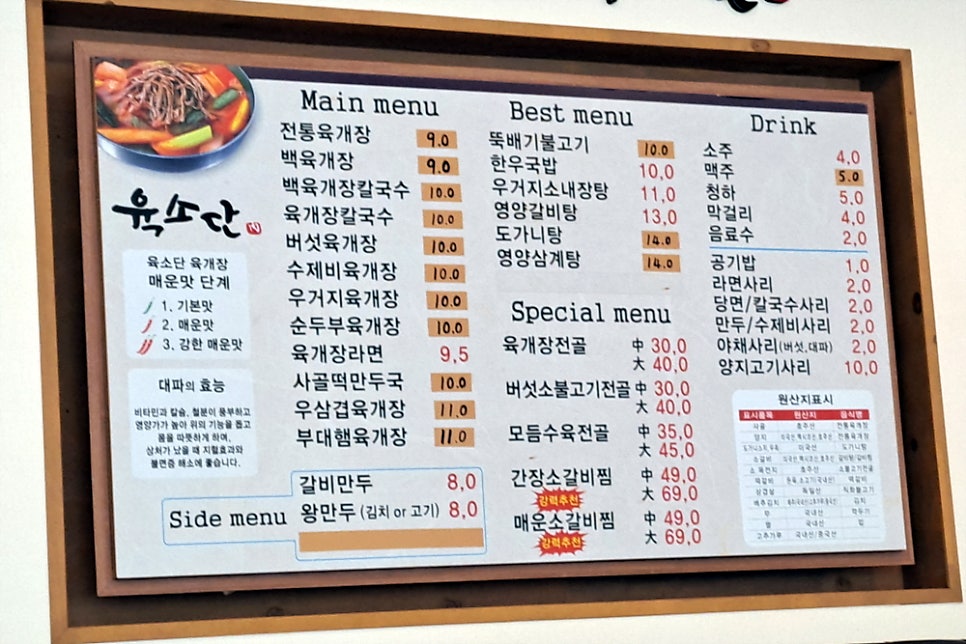 육소단
육소단 육개장
매운맛 단계
1. 기본맛
2. 매운맛
3. 강한 매운맛
대파의 효능
비타민과 칼슘, 철분이 풍부하고
영양가가 높아 위의 기능을 돕고
몸을 따뜻하게 하며,
상처가 났을 때 지혈효과와
불면증 해소에 좋습니다.
Main menu
전통육개장 9.0
백육개장 9.0
백육개장칼국수 10.0
육개장칼국수 10.0
버섯육개장 10.0
수제비육개장 10.0
우거지육개장 10.0
순두부육개장 10.0
육개장라면 9,5
사골떡만두국 10.0
우삼겹육개장 11.0
부대햄육개장 11.0
Side menu
갈비만두 8,0
왕만두 (김치 or 고기) 8,0
Best menu
뚝배기불고기 10.0
한우국밥 10,0
우거지소내장탕 11,0
영양갈비탕 13,0
도가니탕 14.0
영양삼계탕 14.0
Special menu
육개장전골 中 30,0
大 40,0
버섯소불고기전골 中 30,0
大 40,0
모듬수육전골 中 35,0
大 45,0
간장소갈비찜 中 49,0
강력추천 大 69,0
매운소갈비찜 中 49,0
강력추천 大 69,0
Drink
소주 4,0
맥주 5.0
청하 5,0
막걸리 4,0
음료수 2,0
공기밥 1,0
라면사리 2,0
당면/칼국수사리 2,0
만두/수제비사리 2,0
야채사리(버섯,대파) 2,0
양지고기사리 10,0
원산지표시
표시품목 원산지 음식명
사골 호주산 전통육개장
양지 전통육개장
미국산
소갈비
호주산 소불고기전골
떡갈비
삼겹살 독일산 직화불고기
배추김치 김치
무 국내산 깍두기
쌀 국내산 밥
고추가루 국내산/중국산